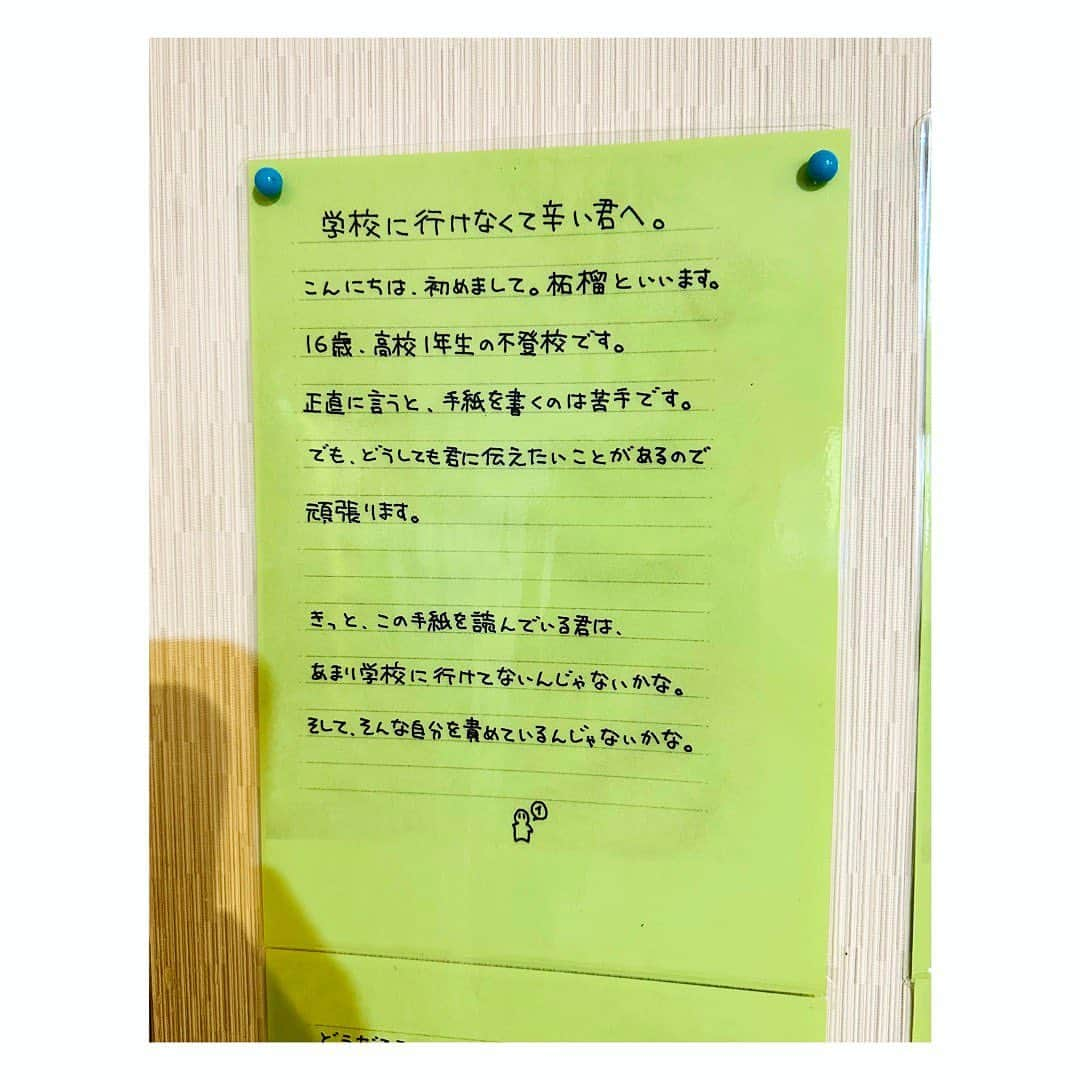 学校に行けなくて辛い君へ。
こんにちは、初めまして。柘榴といいます。
16歳、高校1年生の不登校です。
正直に言うと、手紙を書くのは苦手です。
でも、どうしても君に伝えたいことがあるので
頑張ります。
きっと、この手紙を読んでいる君は、
あまり学校に行けてないんじゃないかな。
そして、そんな自分を責めているんじゃないかな。
1